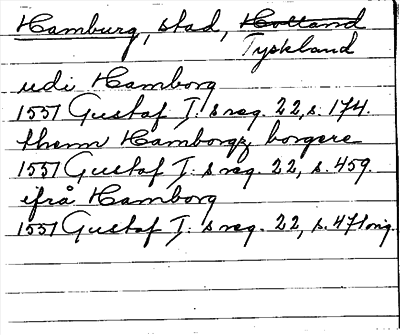 Hamburg, stad, Holland
Tyskland
udi Hamborg
1551 Gustaf I: s reg. 22, s. 174.
themn Hamborgz borgere
1551 Gustaf I: s reg. 22, s. 459.
ifrå Hamborg
1551 Gustaf I: s reg. 22, s. 471 orig.